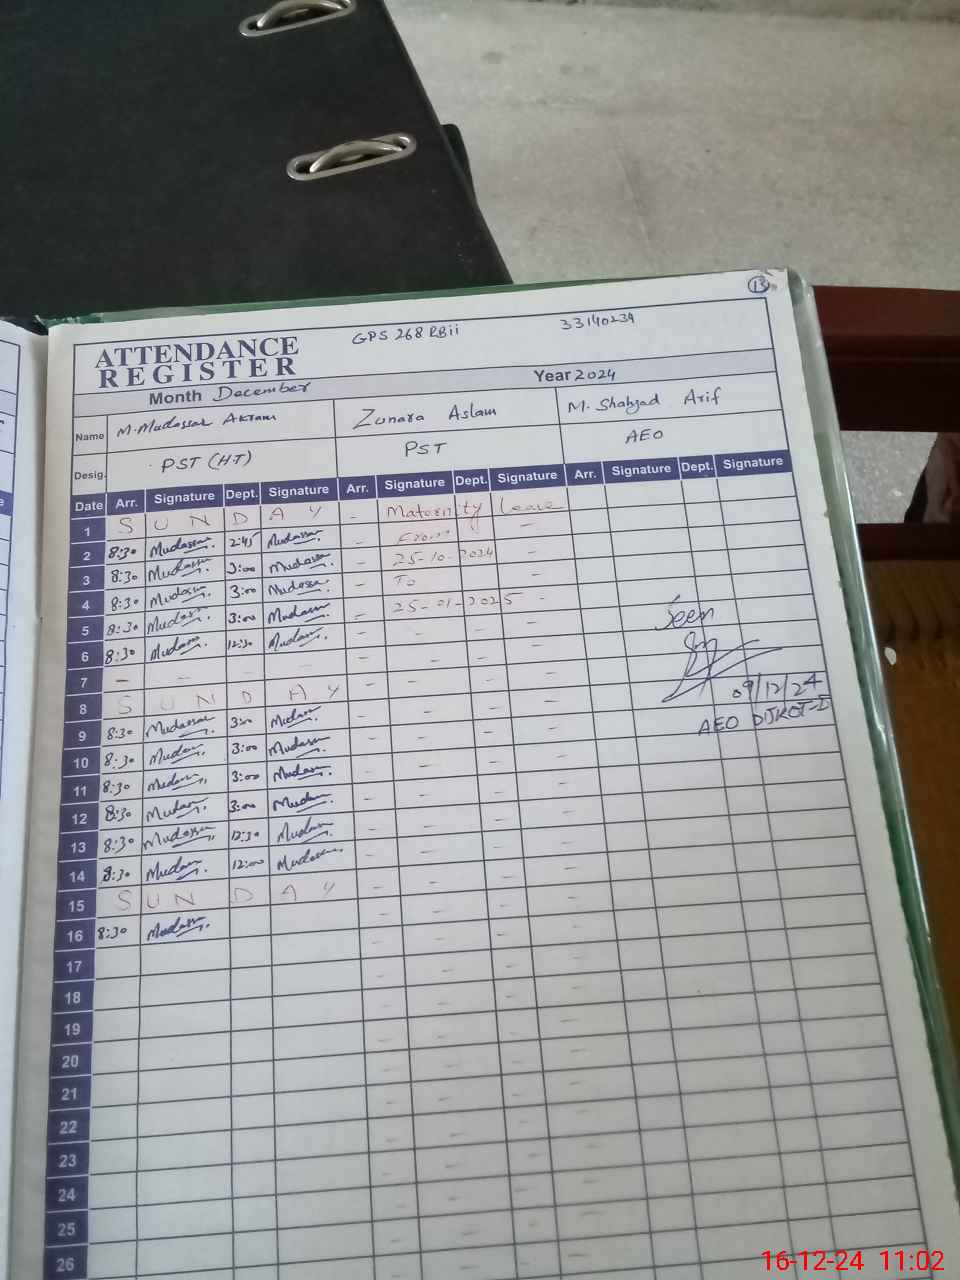 13
GPS 268 RBii 33140239
ATTENDANCE
REGISTER
Month December Year 2024
Name M. Mudassar Akram Zunara Aslam M. Shahzad Arif
Desig. PST (HT) PST AEO
Date Arr. Signature Dept. Signature Arr. Signature Dept. Signature Arr. Signature Dept. Signature
1 SUNDAY - Maternity Leave
2 8:30 Mudassar. 2:45 Mudassar - From -
3 8:30 Mudassar 3:00 Mudassar - 25-10-2024 -
4 8:30 Mudassar 3:00 Mudassar - To -
5 8:30 Mudassar 3:00 Mudassar - 25-01-2025 -
6 8:30 Mudassar 12:30 Mudassar - - - -
7 - - - - - - - -
8 SUNDAY - - - -
9 8:30 Mudassar 3:00 Mudassar - - - -
10 8:30 Mudassar 3:00 Mudassar - - - -
11 8:30 Mudassar 3:00 Mudassar - - - -
12 8:30 Mudassar 3:00 Mudassar - - - -
13 8:30 Mudassar 12:30 Mudassar - - - -
14 8:30 Mudassar 12:00 Mudassar - - - -
15 SUNDAY - - - -
16 8:30 Mudassar - - - -
17 - - - -
18 - - - -
19 - - - -
20 - - - -
21 - - - -
22 - - - -
23 - - - -
24 - - - -
25 - - - -
26 - - - -
Seen
09/12/24
AEO DIJKOT-I
16-12-24 11:02